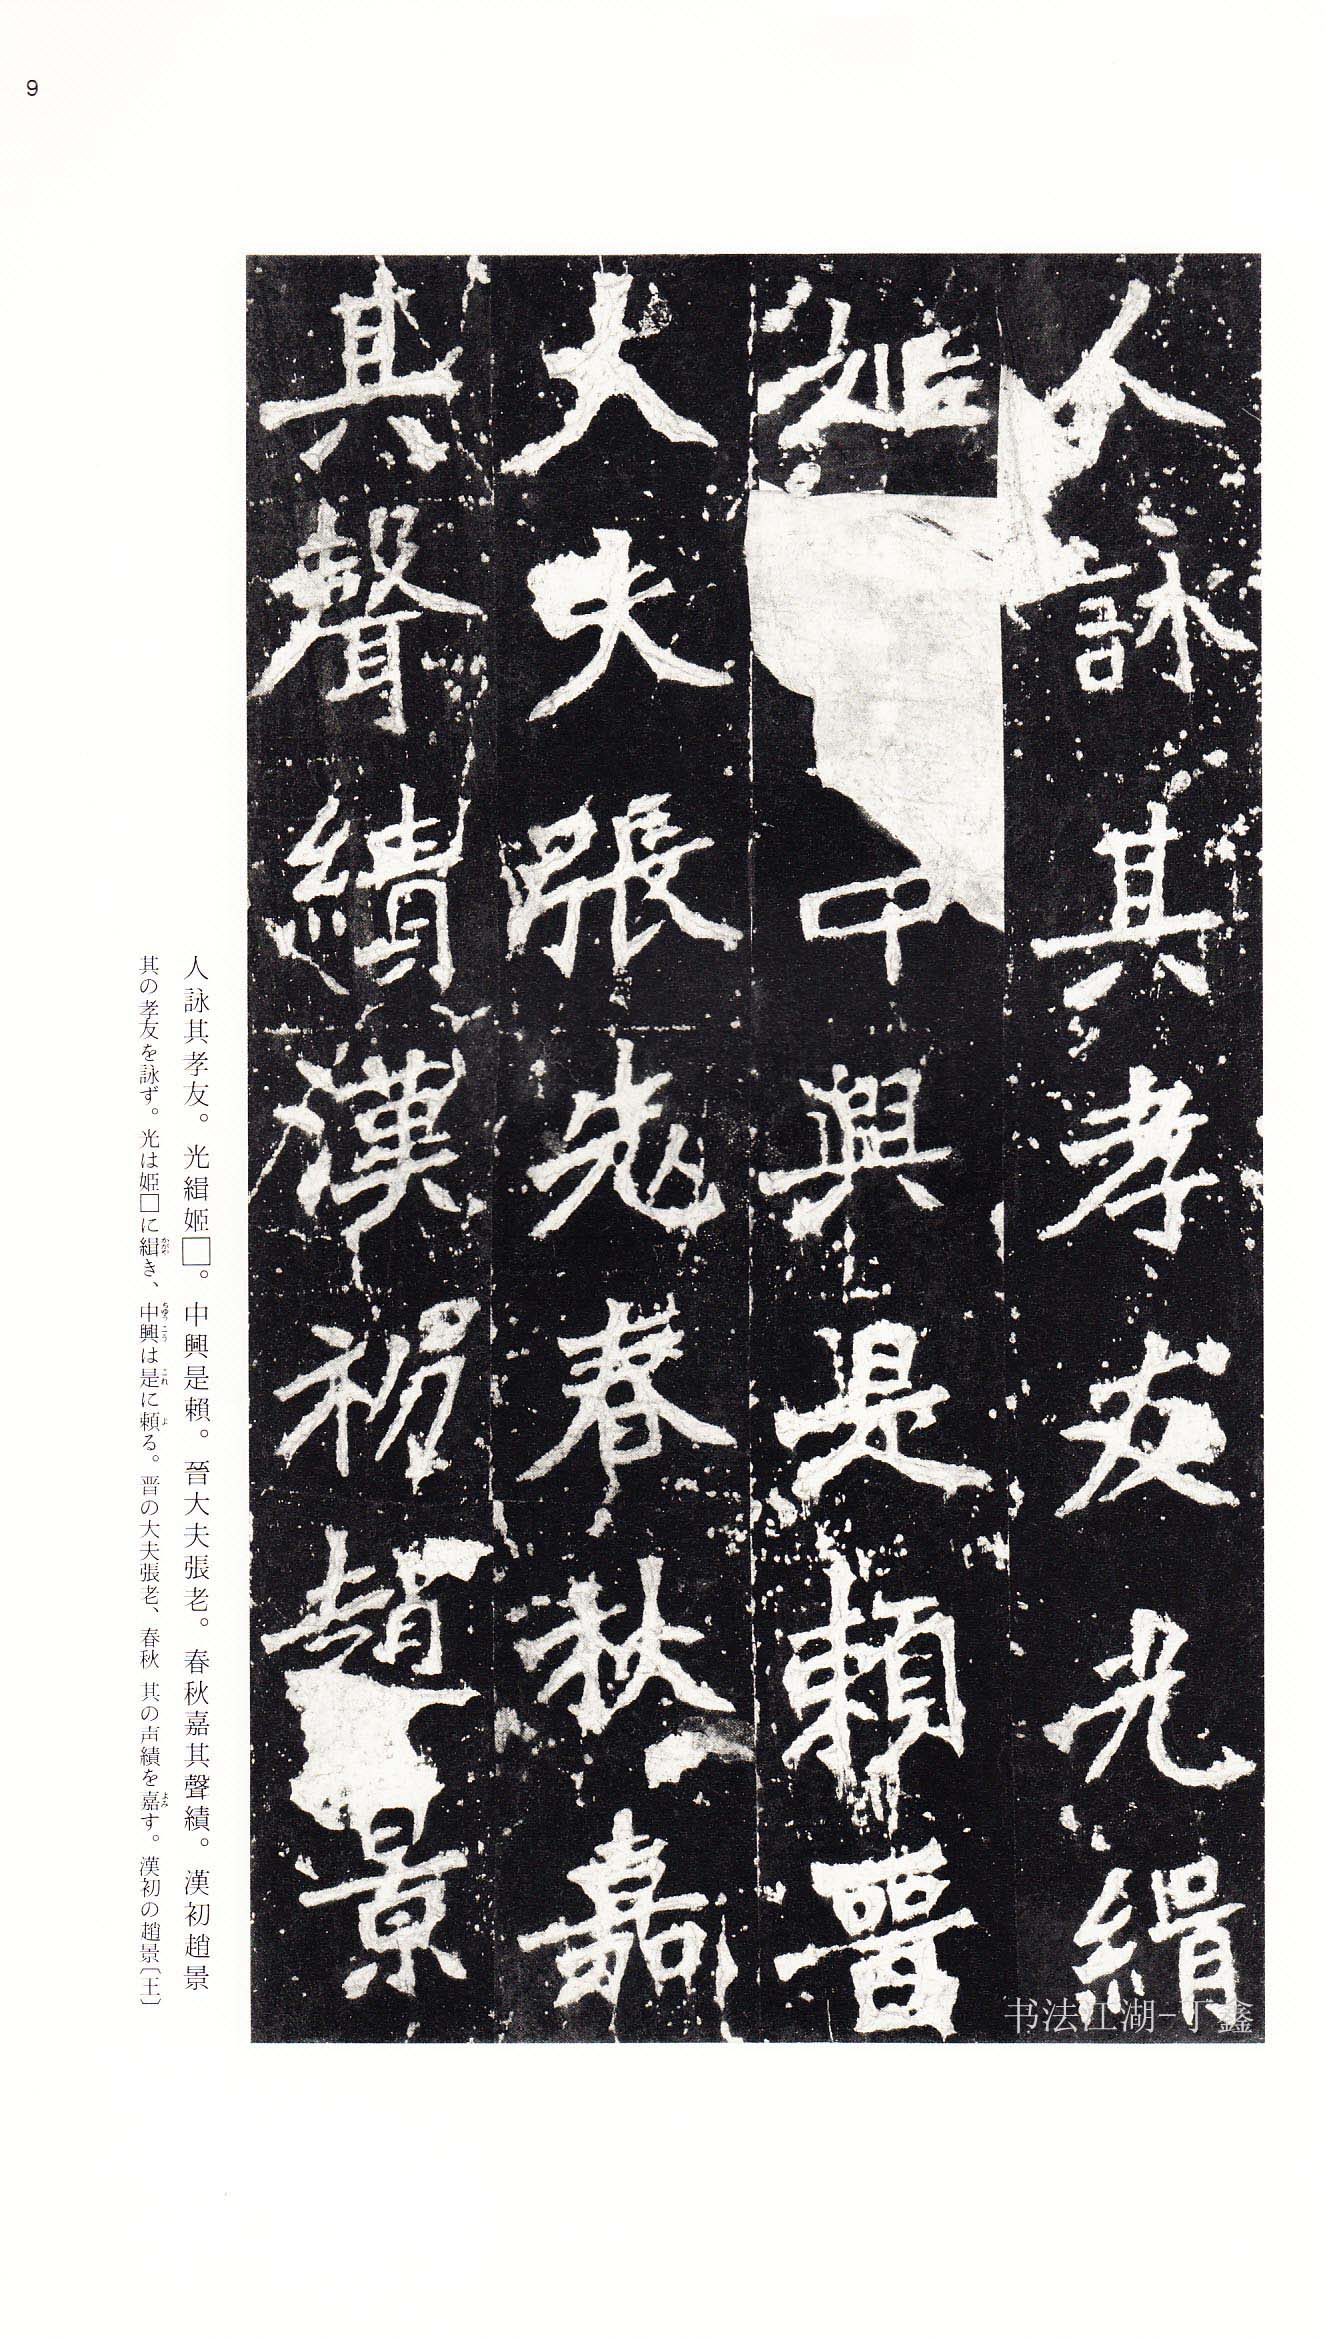 9
人詠其孝友光緝
姬中興是頼晉
大夫張老春秋嘉
其聲績漢初趙景
人詠其孝友。光緝姬□。中興是賴。晉大夫張老。春秋嘉其聲績。漢初趙景
其の孝友を詠ず。光は姫□に緝き、中興は是に頼る。晋の大夫張老、春秋 其の声績を嘉す。漢初の趙景〔王〕
かがや
ちゅうこう
これ
よ
よみ
书法江湖-丁鑫